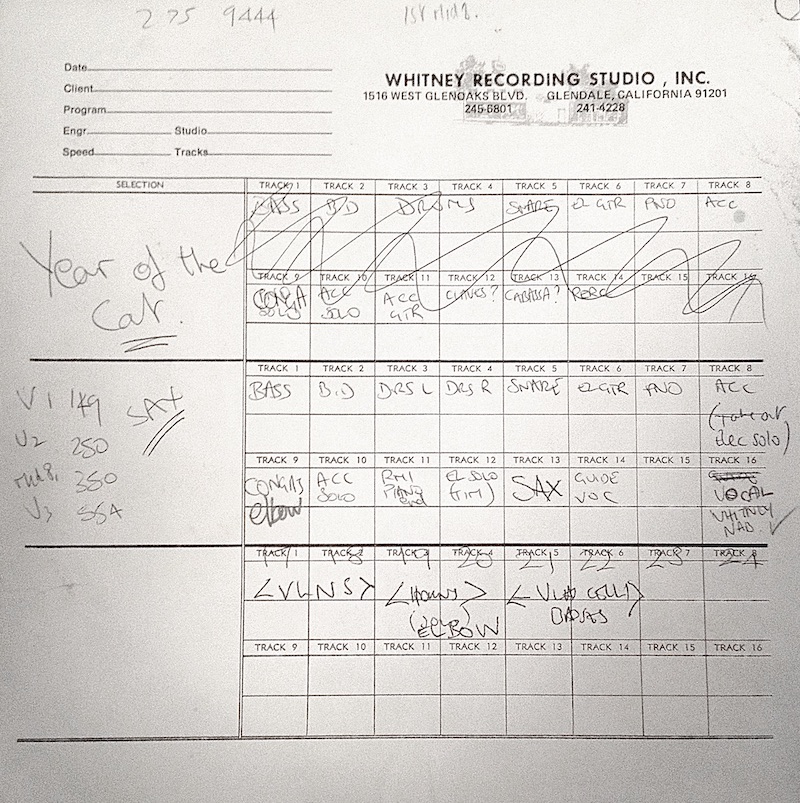 275 9444
1st Mid 8.
WHITNEY RECORDING STUDIO , INC.
1516 WEST GLENOAKS BLVD. GLENDALE, CALIFORNIA 91201
245-6801 241-4228
Date
Client
Program
Engr. Studio
Speed Tracks
SELECTION TRACK 1 TRACK 2 TRACK 3 TRACK 4 TRACK 5 TRACK 6 TRACK 7 TRACK 8
BASS B.D DRUMS SNARE EL GTR PNO ACC
Year of the
Cat.
TRACK 9 TRACK 10 TRACK 11 TRACK 12 TRACK 13 TRACK 14 TRACK 15 TRACK 16
CONGA ACC ACC CLAVES? CABASSA? PERC
SOLO SOLO GTR
TRACK 1 TRACK 2 TRACK 3 TRACK 4 TRACK 5 TRACK 6 TRACK 7 TRACK 8
BASS B.D DRS L DRS R SNARE EL GTR PNO ACC
(take out
elec solo)
V1 149 SAX
V2 250
mid 8, 350
V3 554
TRACK 9 TRACK 10 TRACK 11 TRACK 12 TRACK 13 TRACK 14 TRACK 15 TRACK 16
CONGAS ACC RMI EL SOLO SAX GUIDE
elbow SOLO PIANO (TIM) VOC VOCAL
end WHITNEY
NAD.
TRACK 1 TRACK 2 TRACK 3 TRACK 4 TRACK 5 TRACK 6 TRACK 7 TRACK 8
20 21 22 23 24
<VLNS> <HORNS> <VLA CELLI>
ELBOW BASSES
TRACK 9 TRACK 10 TRACK 11 TRACK 12 TRACK 13 TRACK 14 TRACK 15 TRACK 16